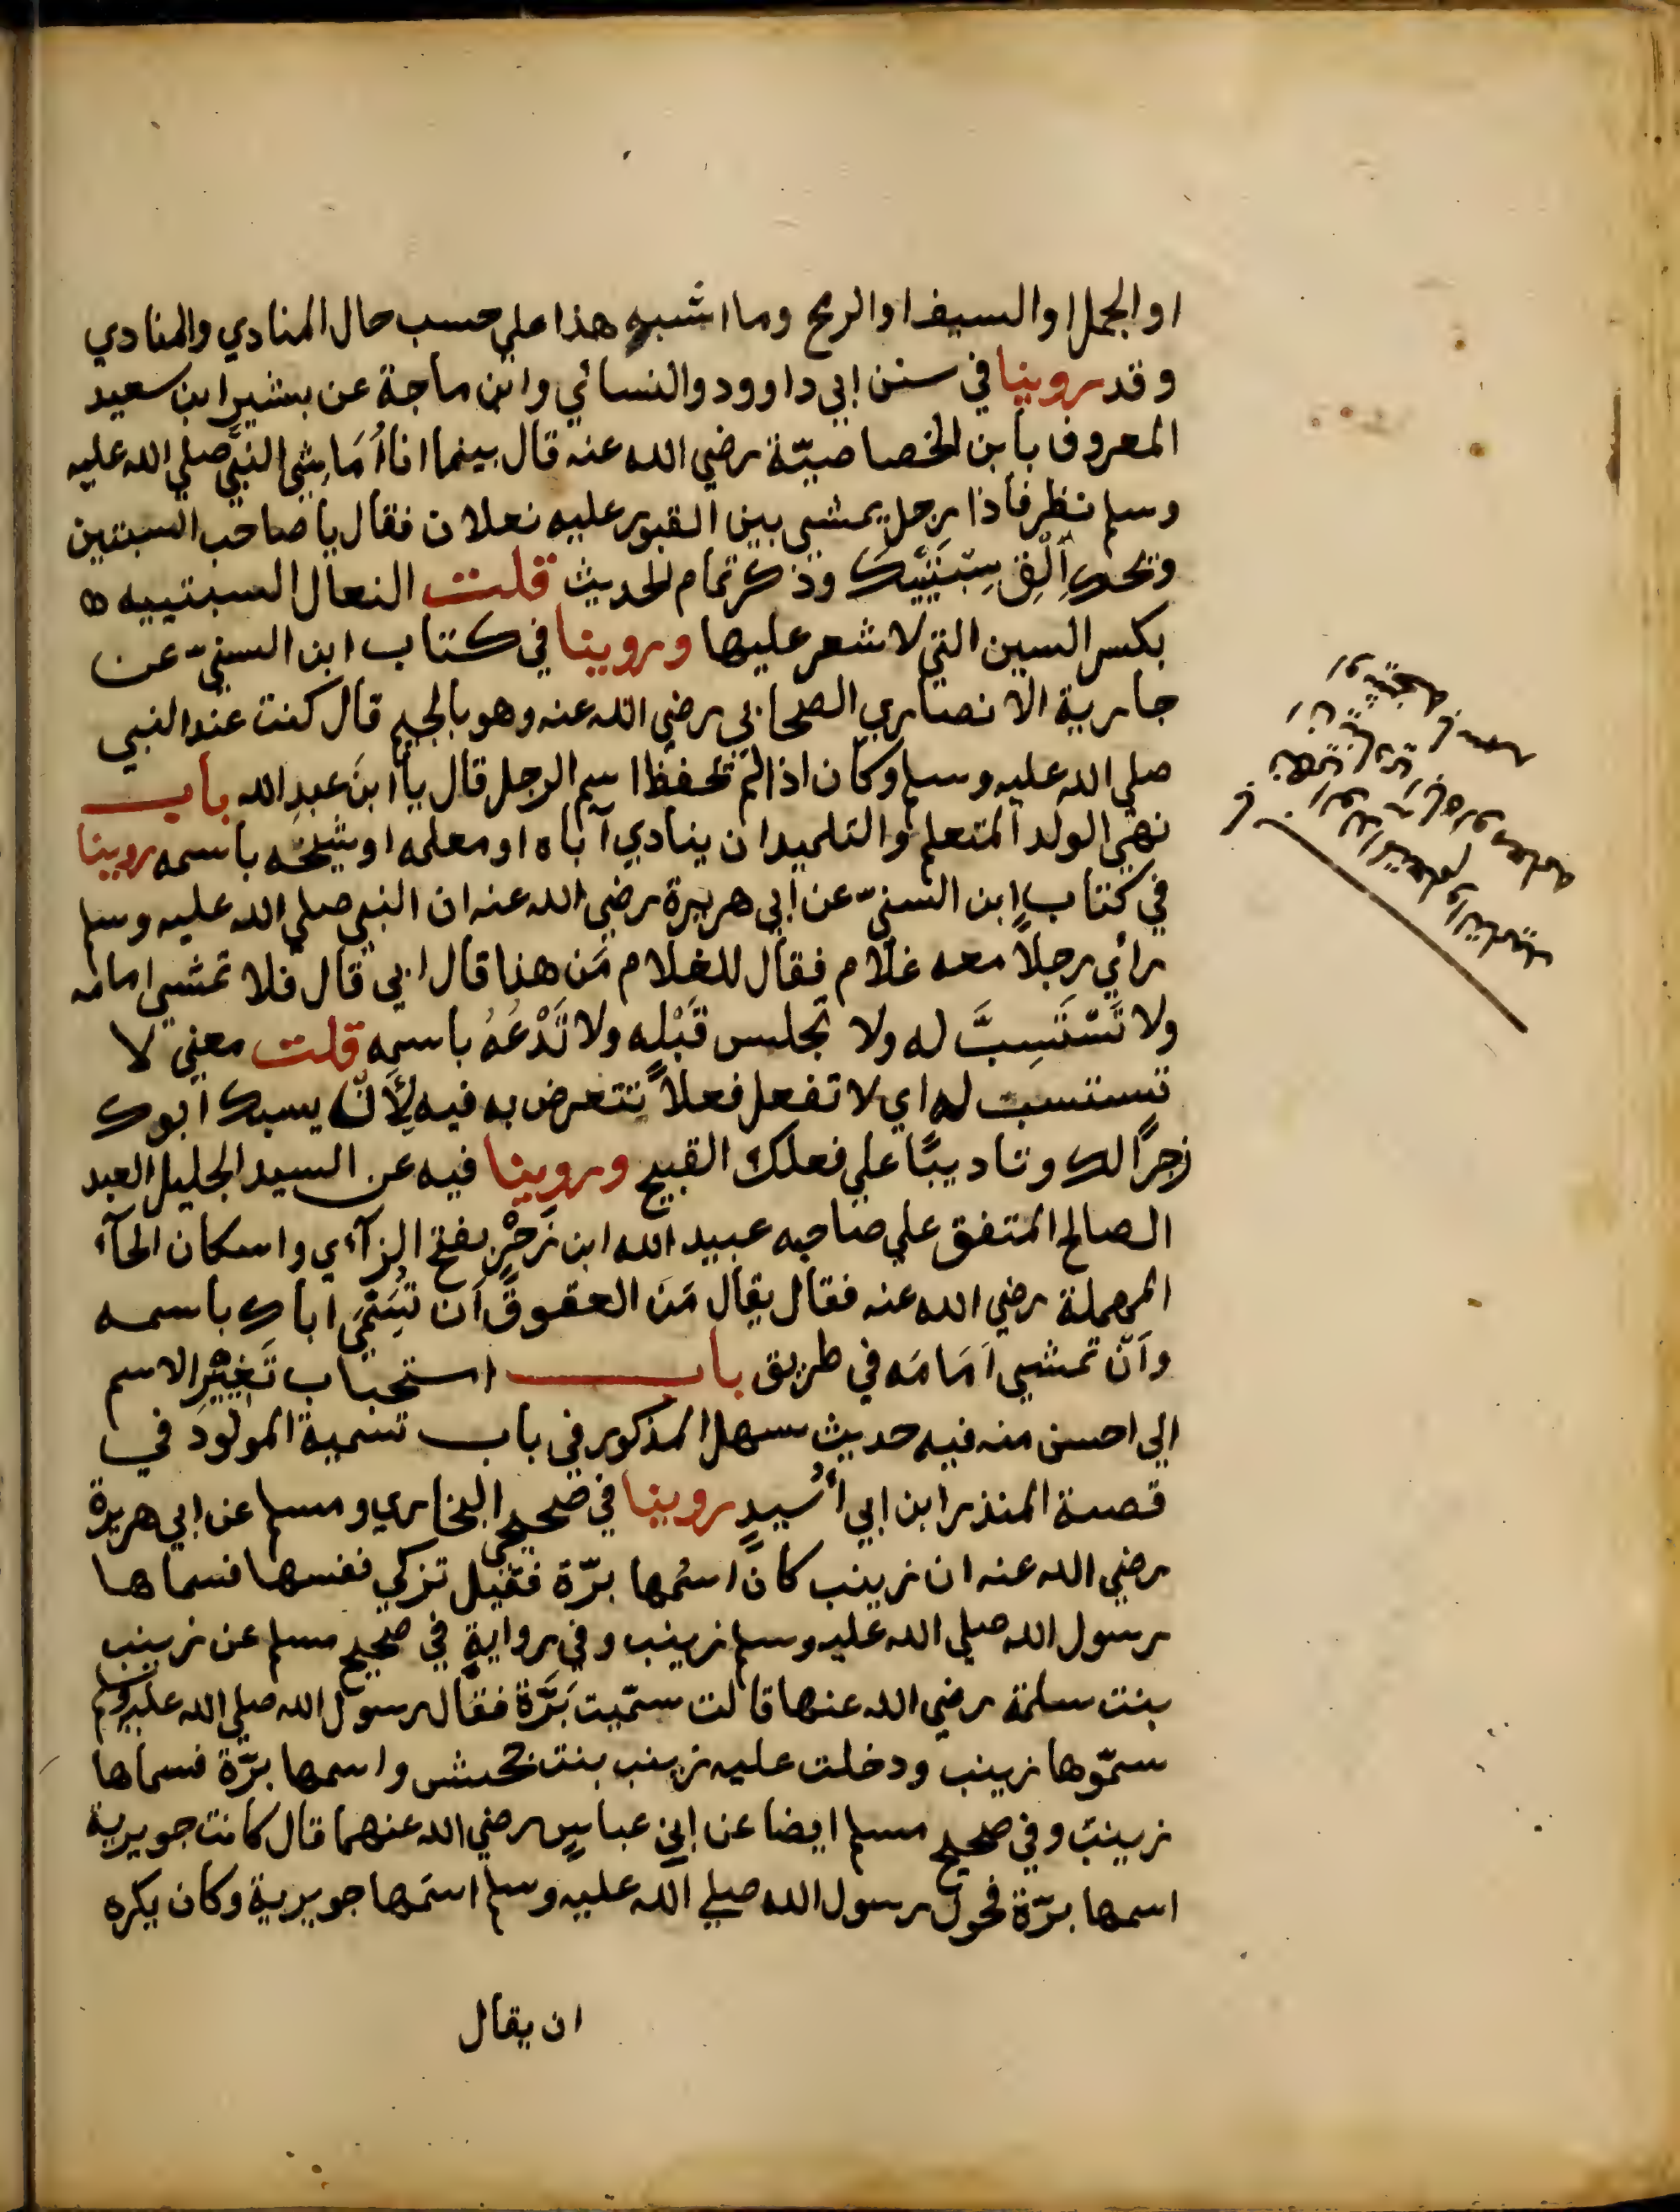 او الجمل او السيف او الرمح وما اشبه هذا علي حسب حال المنادي والمنادي
وقد روينا في سنن ابي داوود والنسائي وابن ماجة عن بشير ابن سعيد
المعروف بابن الخصاصيّة رضي الله عنه قال بينما انا اُمَاشِي النبيَّ صلي الله عليه
وسلم نظر فاذا رجل يمشي بين القبور عليه نعلان فقال يا صاحب السبتين
ويحك اَلْقِ سِبْتَيْيكَ وذكر تمام الحديث قلت النعال السبتييه
بكسر السين التي لا شعر عليها وروينا في كتاب ابن السنيّ عن
جارية الانصاري الصحابي رضي الله عنه وهو بالجيم قال كنت عند النبي
صلي الله عليه وسلم وكان اذا لم يحفظ اسم الرجل قال يا ابنَ عبدِ الله باب
نهي الولد المتعلم والتلميد ان ينادي اباه او معلمه او شيخه باسمه روينا
في كتاب ابن السنيّ عن ابي هريرة رضي الله عنه ان النبي صلي الله عليه وسلم
رأي رجلاً معه غلام فقال للغلام مَن هذا قال ابي قال فلا تمشي امامه
ولا تَسْتَسِبَّ له ولا تجلس قَبْله ولا تَدْعُهُ باسمِه قلت معني لا
تستسب له اي لا تفعل فعلاً تتعرض به فيه لِأَنّ يسبك ابوك
زجرًا لك وتاديبًا علي فعلك القبيح وروينا فيه عن السيد الجليل العبد
الصالح المتفق علي صلاحه عبيد الله ابن زَحْرٍ بفتح الزآءي واسكان الحآء
المهملة رضي الله عنه فقال يقال مَن العقوق اَن تُسَمِّيَ اباك باسمه
واَنّ تمشي اَمَامَه في طريق باب استحباب تَغيْيْرِ الاسم
الي احسن منه فيه حديث سهل المذكور في باب تسمية المولود في
قصة المنذر ابن ابي أُسَيدٍ روينا في صحيحي البخاري ومسلم عن ابي هريرة
رضي الله عنه ان زينب كان اسْمها برّة فقيل تزكي نفسها فسماها
رسول الله صلي الله عليه وسلم زينب وفي روايةٍ في صحيح مسلم عن زينب
بنت سلمة رضي الله عنها قالت سمّيت بَرَّة فقال رسول الله صلي الله عليه وسلم
سمّوها زينب ودخلت عليه زينب بنت جحش واسمها برّة فسماها
زينب وفي صحيح مسلم ايضا عن ابن عباسٍ رضي الله عنهما قال كانت جويرية
اسمها برّة فحول رسول الله صلي الله عليه وسلم اسمَها جويرية وكان يكره
ان يقال